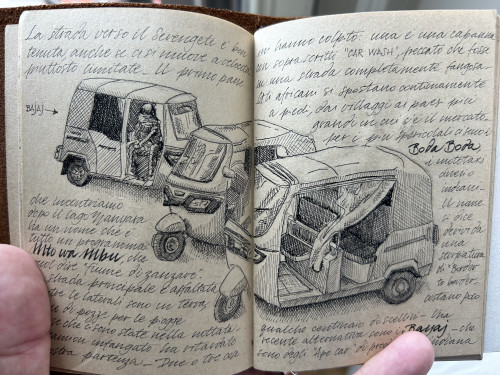 La strada verso il Serengeti è ben
tenuta, anche se ci si muove a velocità
piuttosto limitate. Il primo paese
BAJAJ →
che incontriamo
dopo il lago Manyara
ha un nome che è
tutto un programma:
Mto wa Mbu, che
vuol dire "fiume di zanzare".
strada principale è asfaltata
le laterali sono in terra,
di pozze per le piogge
che ci sono state nella nottata.
infangato ha ritardato
nostra partenza. Due o tre cose
mi hanno colpito: una è una capanna
con sopra scritto "CAR WASH", peccato che fosse
in una strada completamente fangosa.
Gli africani si spostano continuamente
a piedi, dai villaggi ai paesi più
grandi in cui c'è il mercato.
per i più
Boda Boda,
i mototaxi
diversi
indiani.
Il nome
si dice
derivi da
una
storpiatura
di "Border
to border"
costano più
qualche centinaio di scellini. Una
recente alternativa sono i Bajaj, che
sono degli "Ape car" di indiana